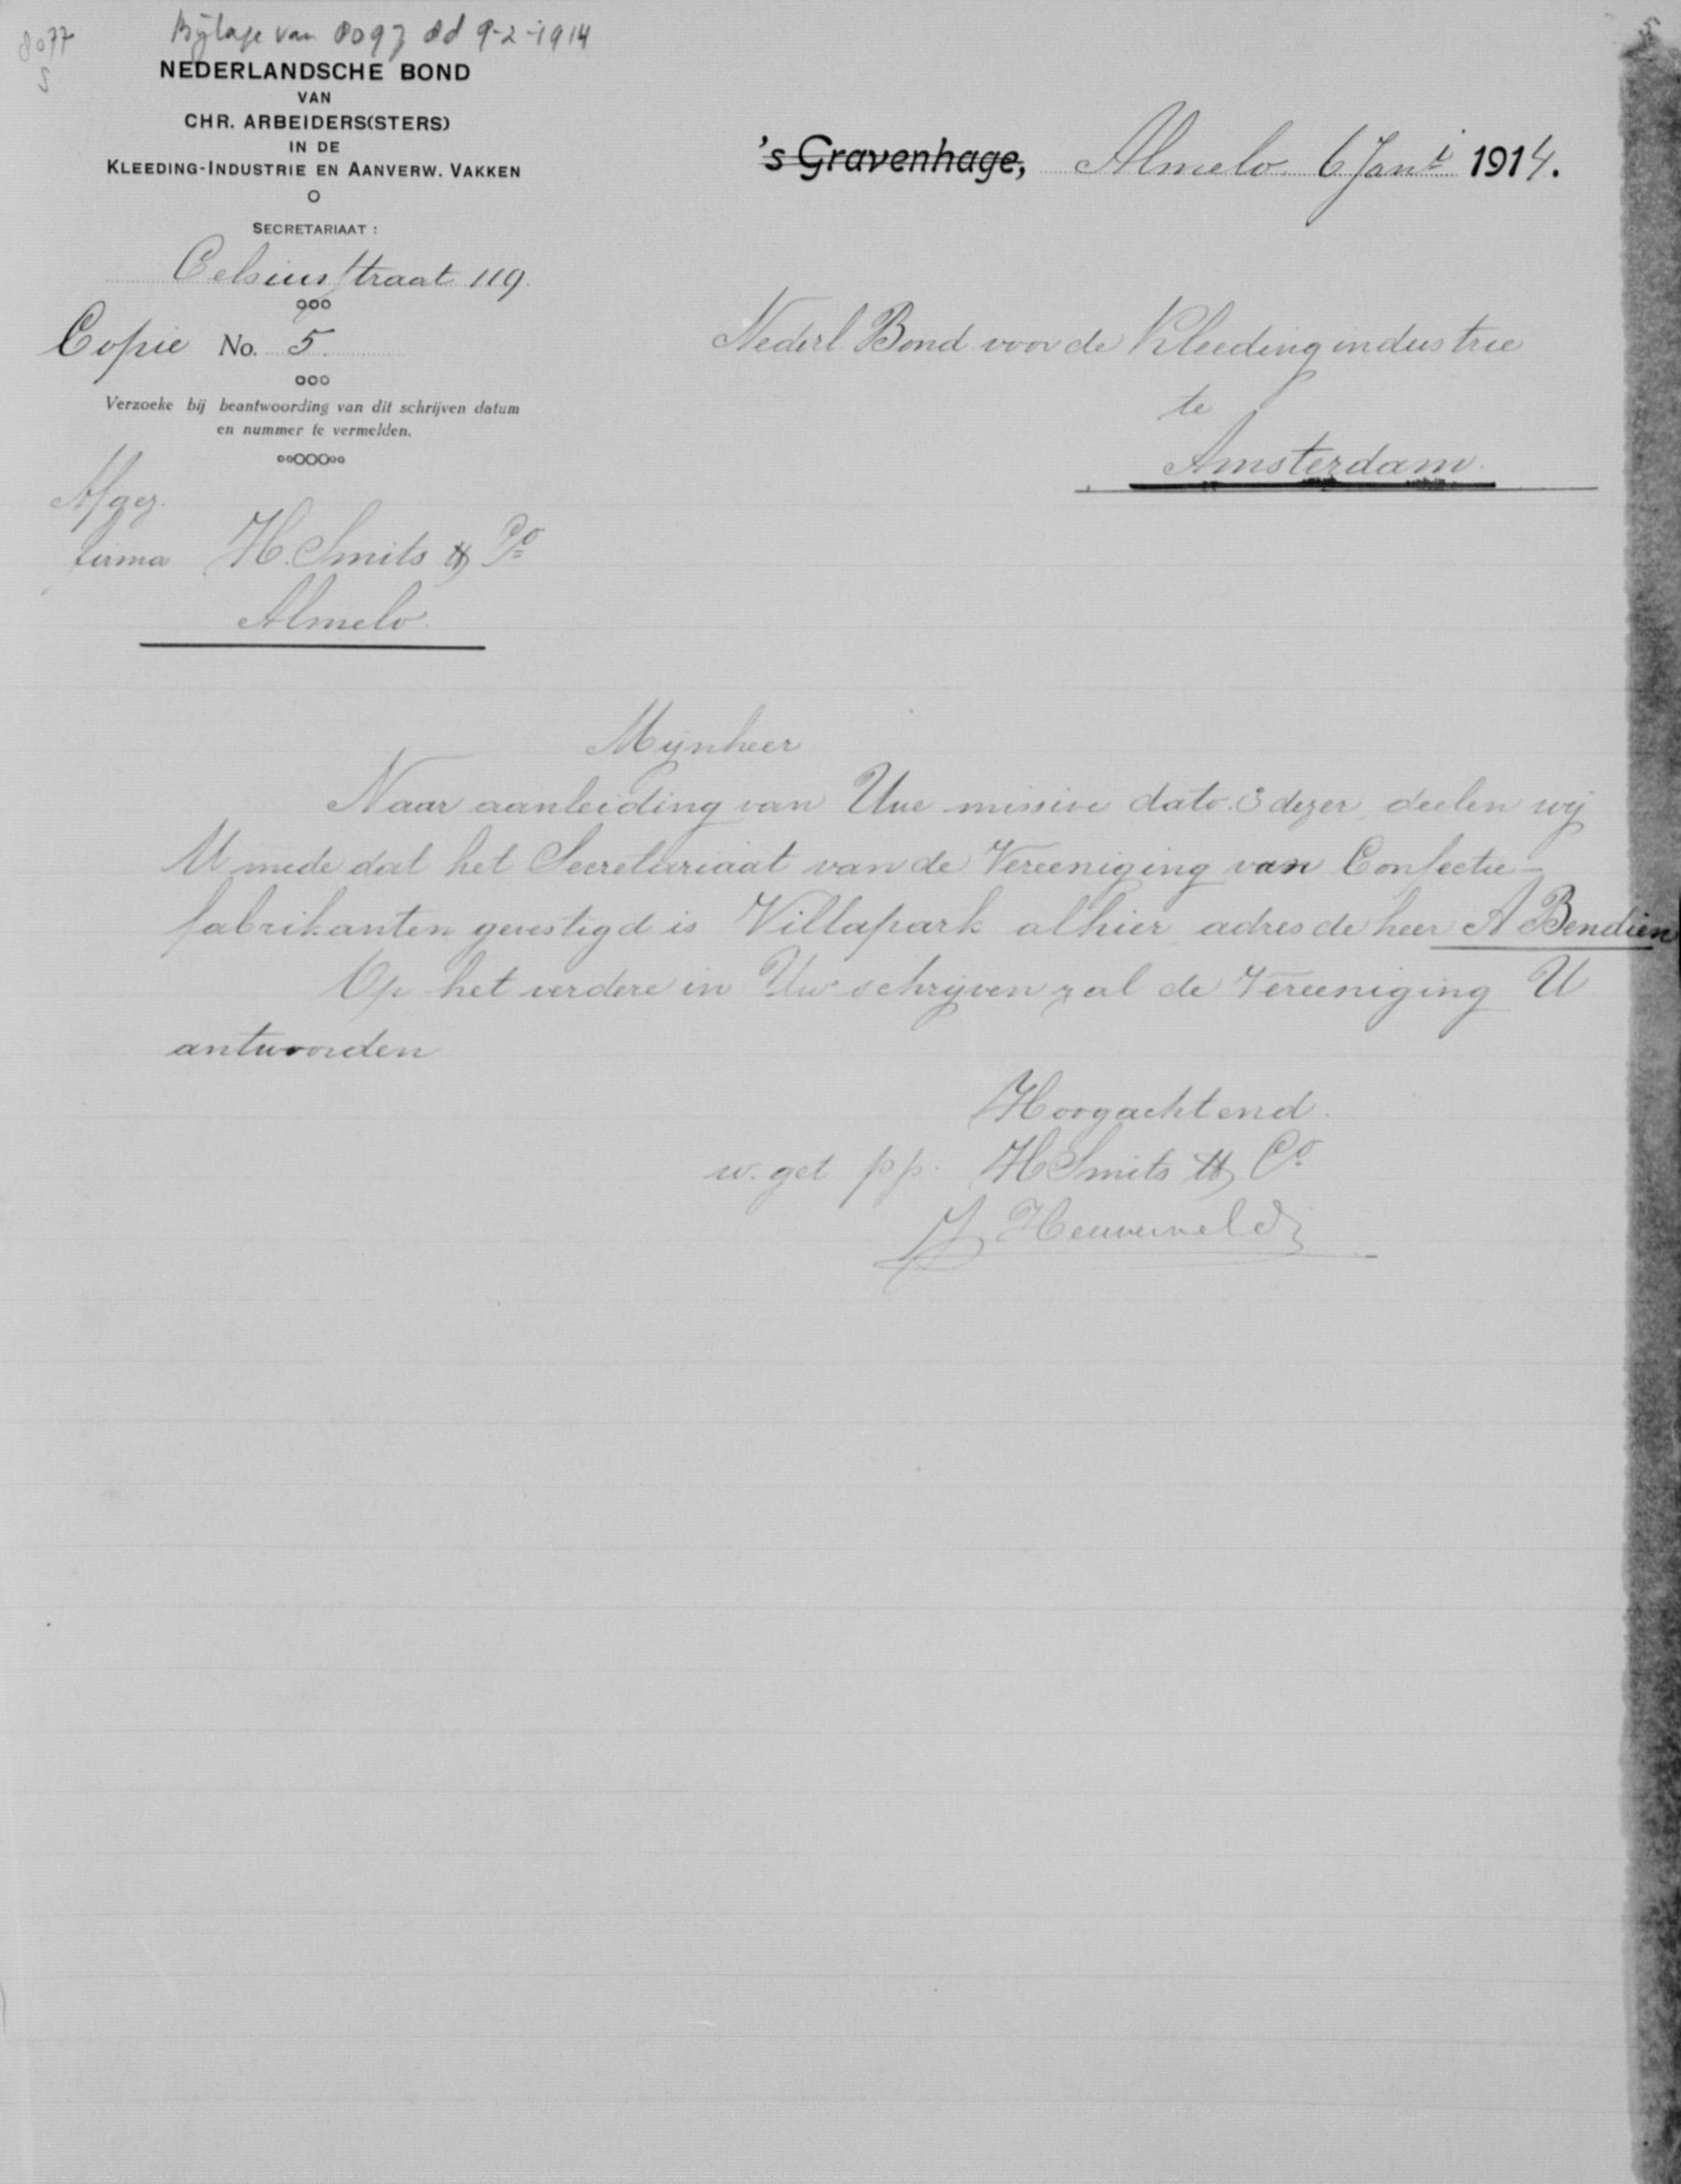 8077
5
Bijlage van 8097 dd 9-2-1914
NEDERLANDSCHE BOND
VAN
CHR. ARBEIDERS(STERS)
IN DE
KLEEDING-INDUSTRIE EN AANVERW. VAKKEN
SECRETARIAAT:
Celsiusstraat 119.
Copie No. 5.
Verzoeke bij beantwoording van dit schrijven datum
en nummer te vermelden.
Afgez.
firma H. Smits & Co
Almelo.
's Gravenhage, Almelo 6 Jani 1914.
Nederl. Bond voor de Kleedingindustrie
te
Amsterdam.
Mijnheer
Naar aanleiding van Uwe missive dato. 3 dezer, deelen wij
U mede dat het Secretariaat van de Vereeniging van Confectie-
fabrikanten gevestigd is Villapark alhier, adres de heer A Bendien
Op het verdere in Uw schrijven zal de Vereeniging U
antwoorden
Hoogachtend.
w. get pp. H Smits & Co